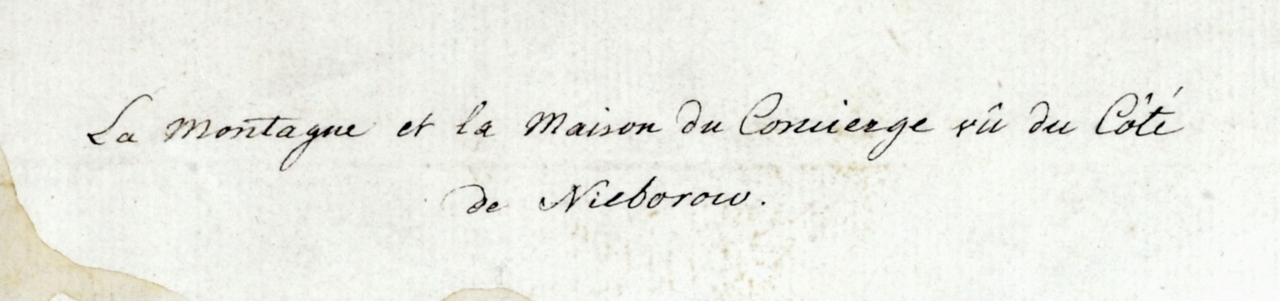 La Montagne et la Maison du Concierge vû du Côté
de Nieborow.